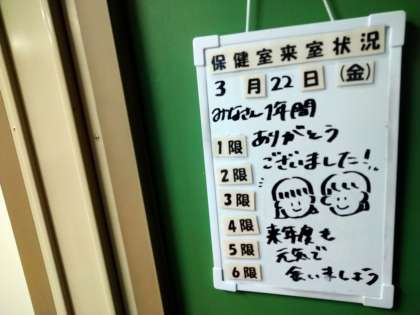 保健室来室状況
3月22日(金)
みなさん1年間
ありがとう
ございました!
1限
2限
3限
4限
5限
6限
来年度も
元気で
会いましょう